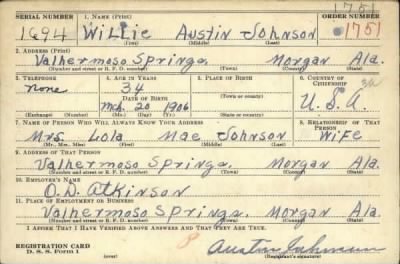 1751
SERIAL NUMBER 1. NAME (Print) ORDER NUMBER
1694 Willie Austin Johnson 1751
(First) (Middle) (Last)
2. ADDRESS (Print)
Valhermoso Springs, Morgan Ala.
(Number and street or R. F. D. number) (Town) (County) (State)
3. TELEPHONE 4. AGE IN YEARS 5. PLACE OF BIRTH 6. COUNTRY OF CITIZENSHIP
none 34
DATE OF BIRTH (Town or county)
Mch. 20 1906 U.S.A.
(Exchange) (Number) (Mo.) (Day) (Yr.) (State or country)
7. NAME OF PERSON WHO WILL ALWAYS KNOW YOUR ADDRESS 8. RELATIONSHIP OF THAT PERSON
Mrs. Lola Mae Johnson Wife
(Mr., Mrs., Miss) (First) (Middle) (Last)
9. ADDRESS OF THAT PERSON
Valhermoso Springs, Morgan Ala.
(Number and street or R. F. D. number) (Town) (County) (State)
10. EMPLOYER'S NAME
O.D. Atkinson
11. PLACE OF EMPLOYMENT OR BUSINESS
Valhermoso Springs, Morgan Ala.
(Number and street or R. F. D. number) (Town) (County) (State)
I AFFIRM THAT I HAVE VERIFIED ABOVE ANSWERS AND THAT THEY ARE TRUE.
REGISTRATION CARD
D. S. S. Form 1
Austin Johnson
(Registrant's signature)